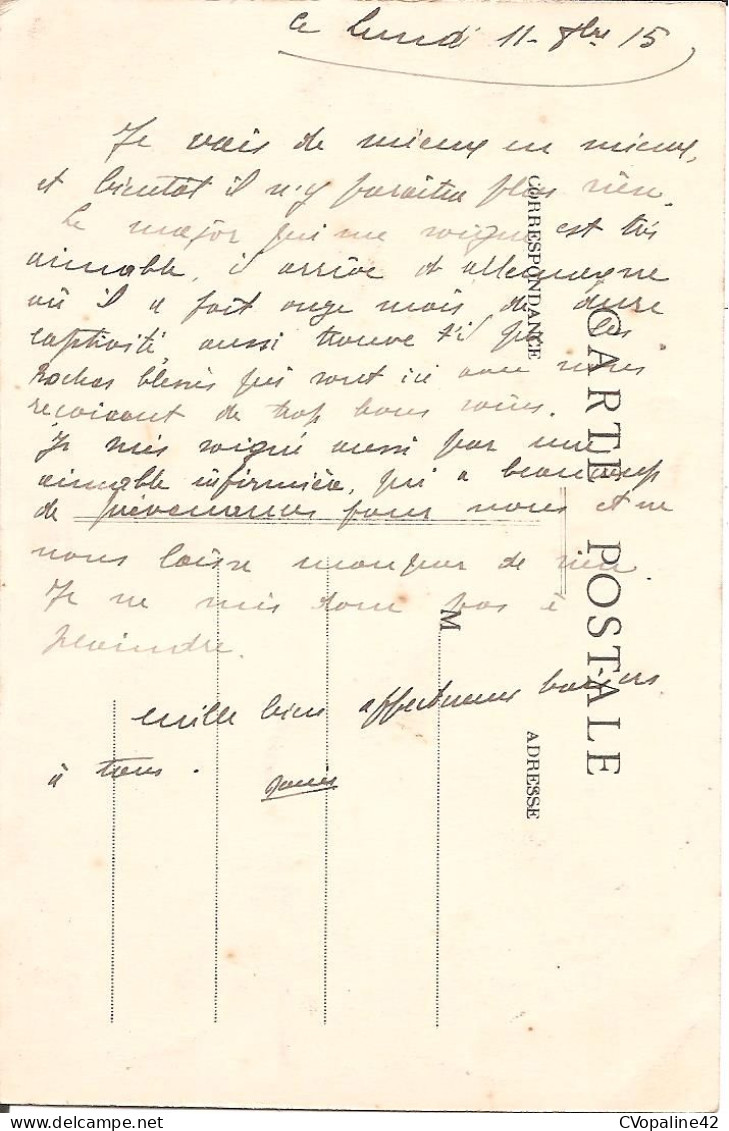 ce lundi 11 - 8bre 15
Je vais de mieux en mieux,
et bientôt il n'y paraîtra plus rien.
Le major qui me soigne est très
aimable, il arrive d'allemagne
où il a fait onze mois de dure
captivité aussi trouve t'il que les
boches blessés qui sont ici avec nous
reçoivent de trop bons soins.
Je suis soigné aussi par une
aimable infirmière, qui a beaucoup
de prévenances pour nous et ne
nous laisse manquer de rien
Je ne suis donc pas à
plaindre.
mille bien affectueux baisers
à tous.
CORRESPONDANCE
CARTE POSTALE
M
ADRESSE
CVopaline42